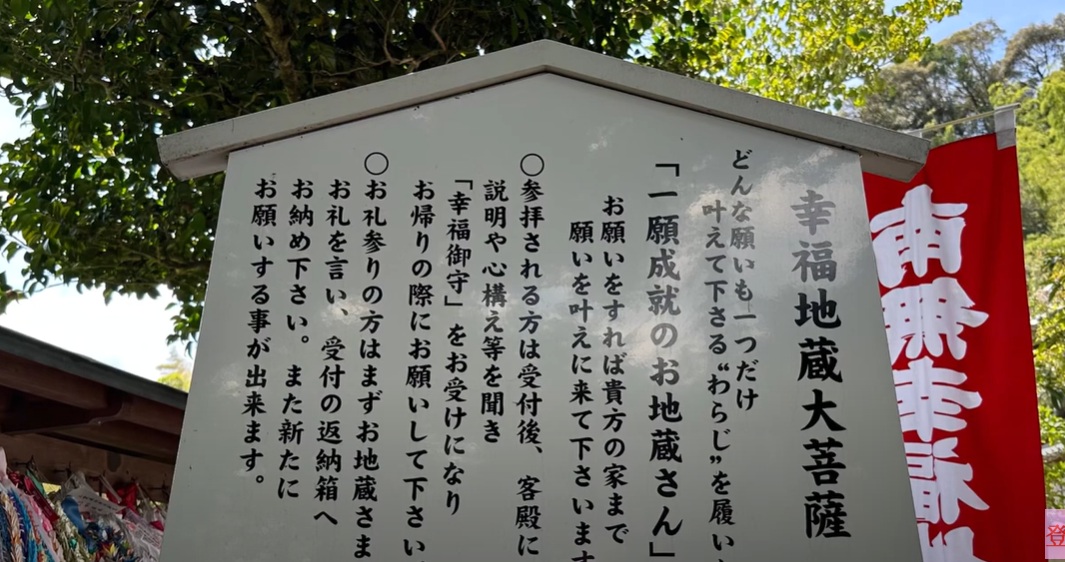 幸福地蔵大菩薩
どんな願いも一つだけ
叶えて下さる〝わらじ〟を履い
「一願成就のお地蔵さん」
お願いをすれば貴方の家まで
願いを叶えに来て下さいます
○参拝される方は受付後、客殿に
説明や心構え等を聞き
「幸福御守」をお受けになり
お帰りの際にお願いして下さい
○お礼参りの方はまずお地蔵さま
お礼を言い、受付の返納箱へ
お納め下さい。また新たに
お願いする事が出来ます。
南無幸福地
登